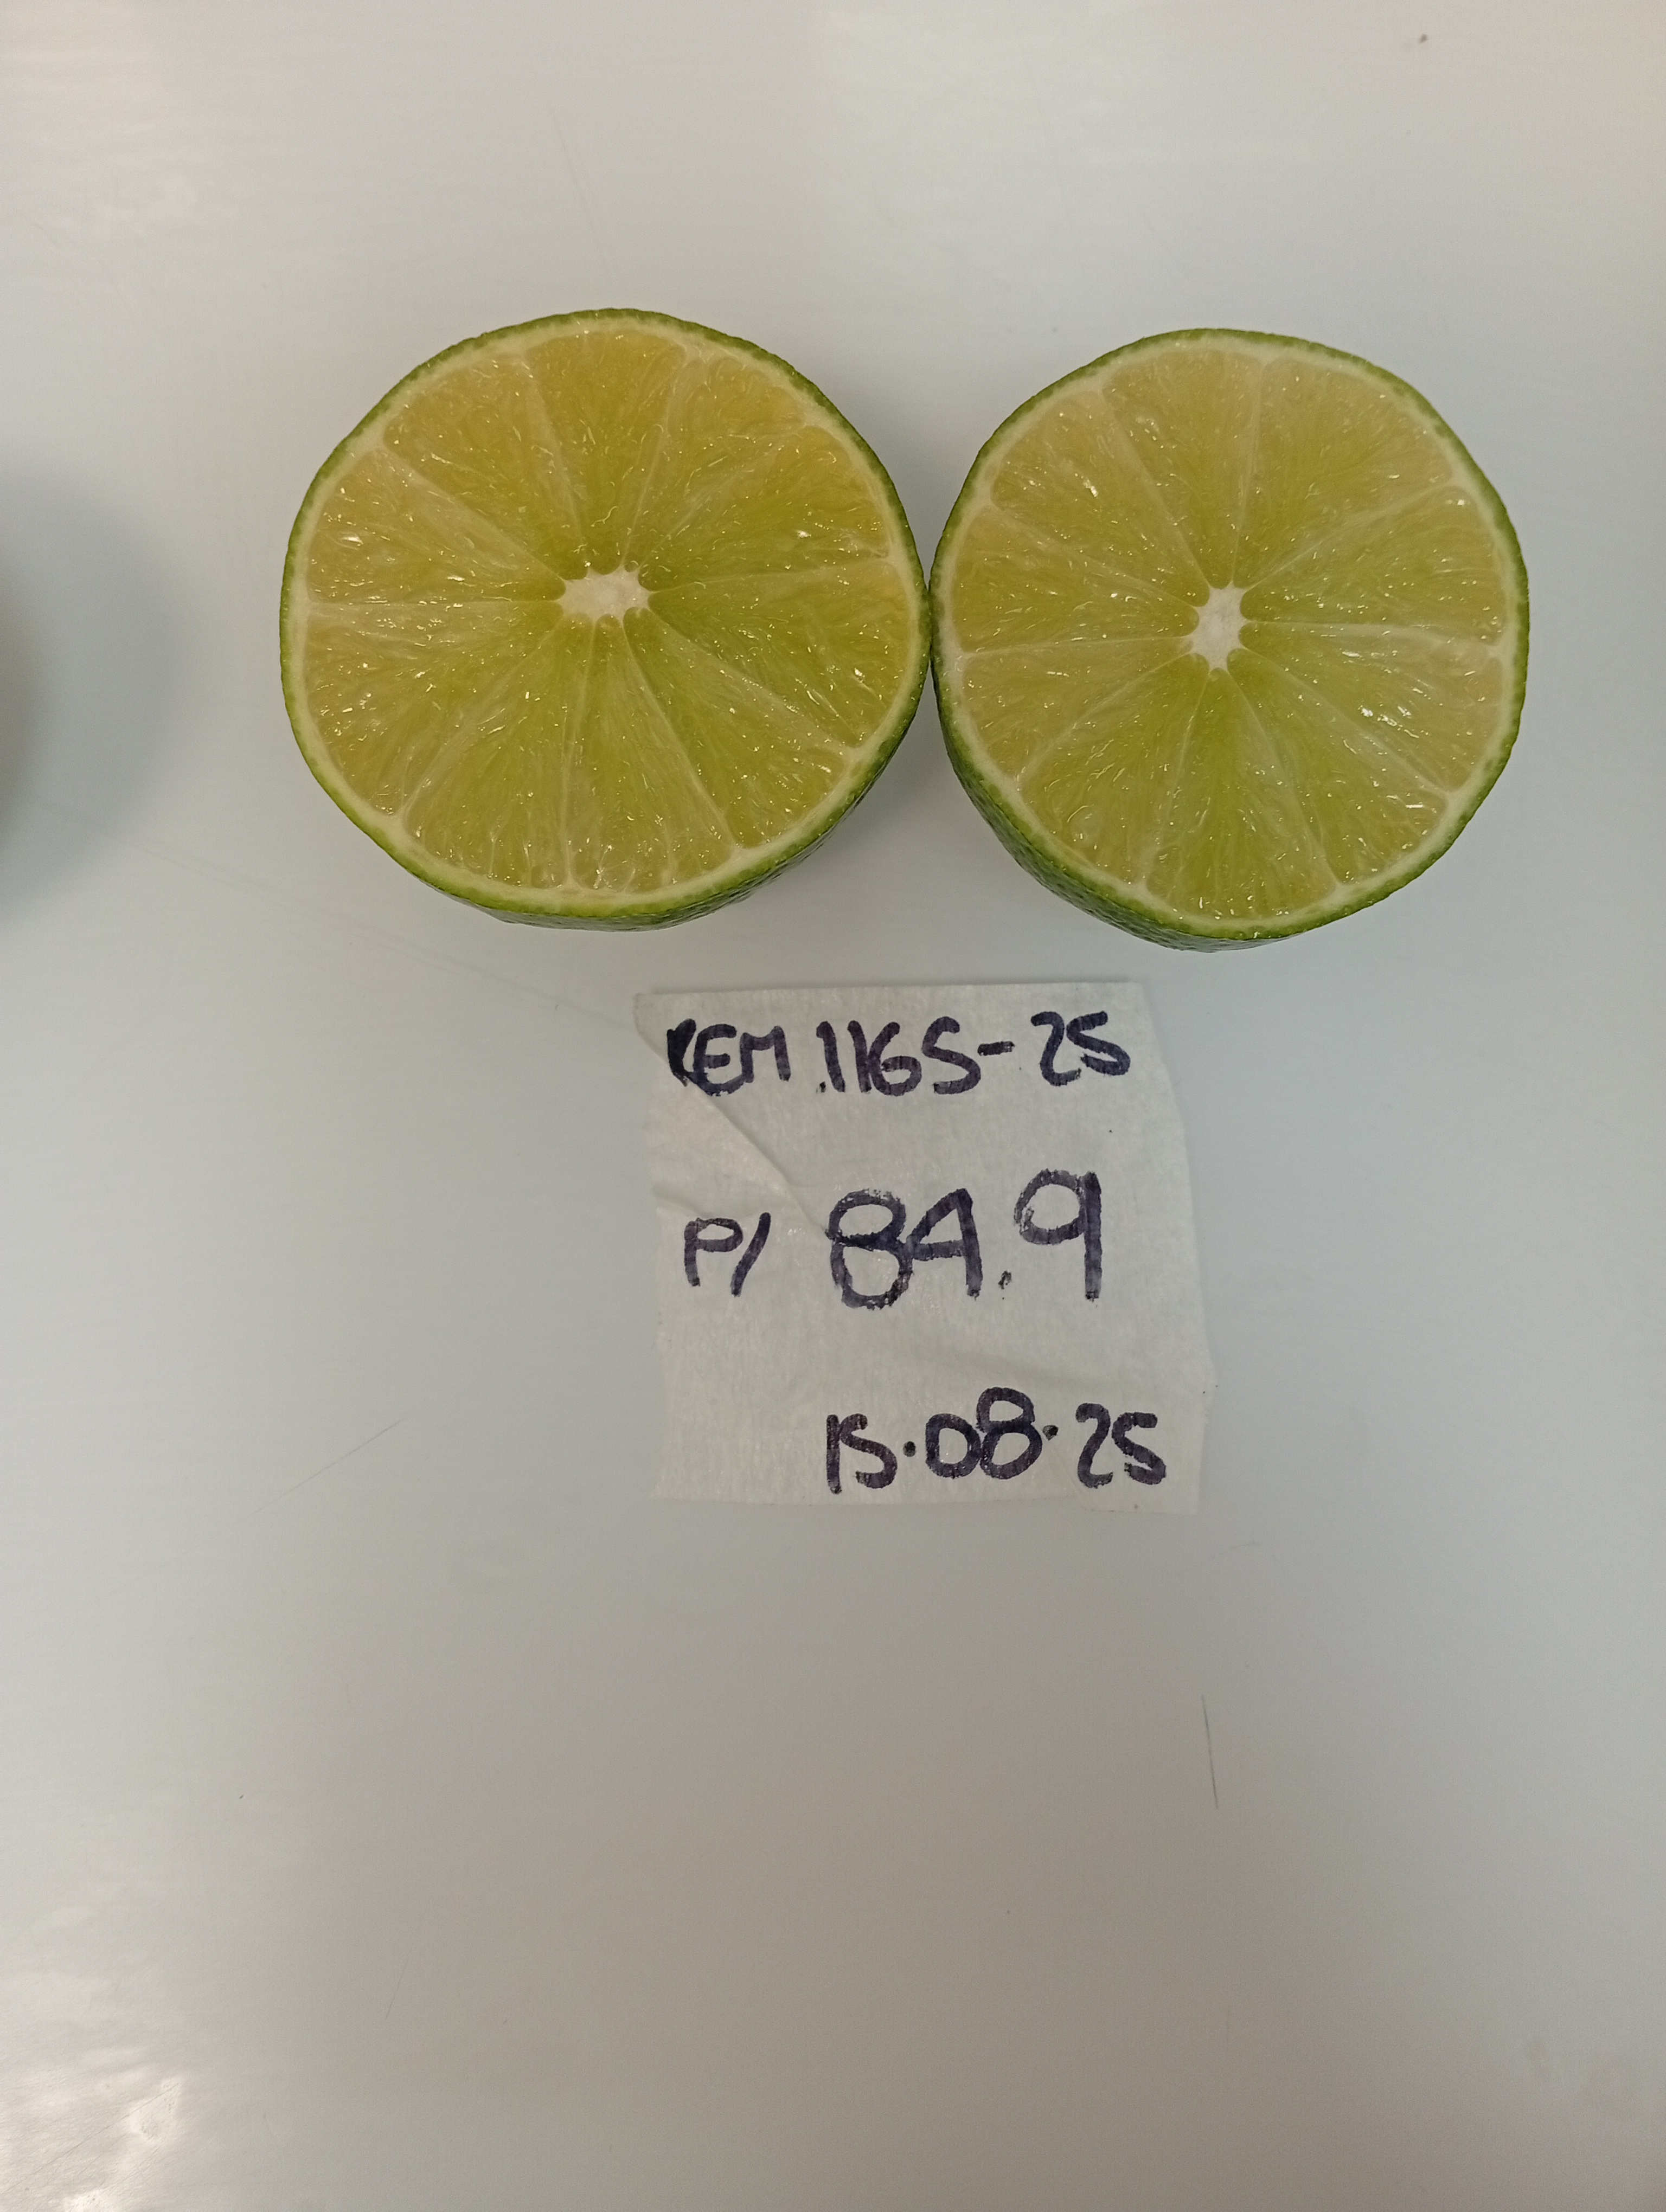 REM.1165-25
P/ 84.9
15.08.25